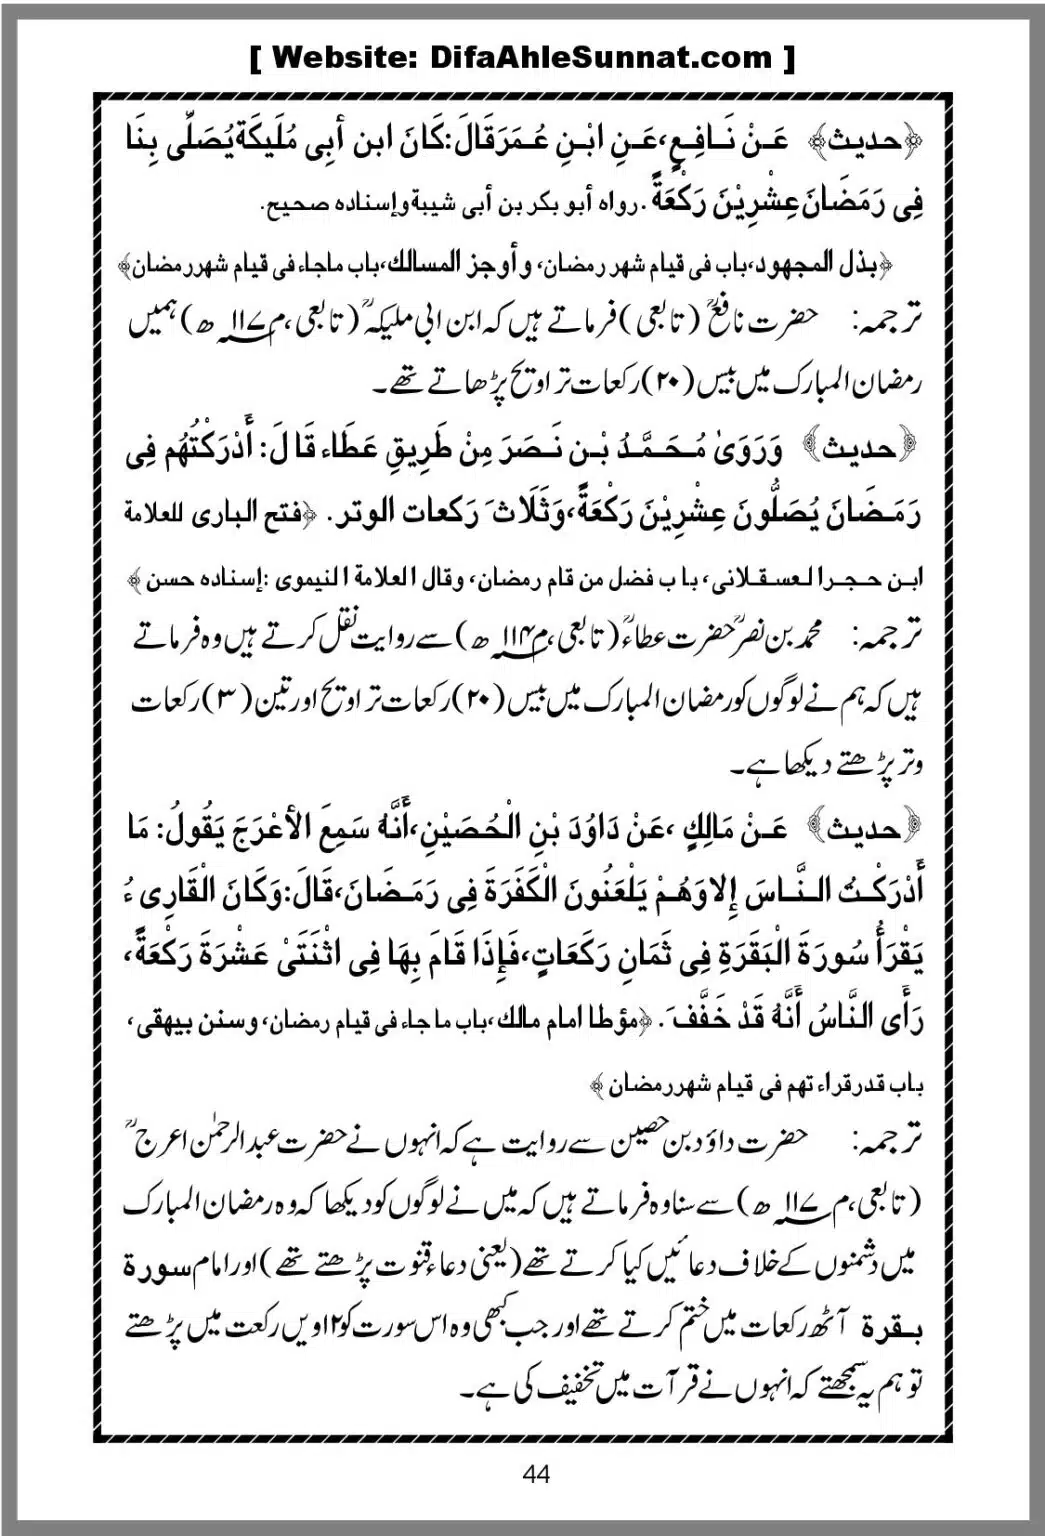 [ Website: DifaAhleSunnat.com ]
﴿حدیث﴾ عَـنْ نَـافِـعٍ،عَـنِ ابْـنِ عُـمَرَقَالَ:کَانَ ابن أبِی مُلَیکَة یُصَلِّی بِنَا
فِی رَمَضَانَ عِشْرِیْنَ رَکْعَةً .رواہ أبو بکر بن أبی شیبة وإسنادہ صحیح.
﴿بذل المجهود،باب فی قیام شهر رمضان، وأوجز المسالك،باب ماجاء فی قیام شهررمضان﴾
ترجمہ: حضرت نافعؒ (تابعی) فرماتے ہیں کہ ابن ابی ملیکہؒ (تابعی،م ۱۱۷ھ) ہمیں
رمضان المبارک میں بیس (۲۰) رکعات تراویح پڑھاتے تھے۔
﴿حدیث﴾ وَرَوَیٰ مُـحَـمَّـدُ بْـنِ نَـصَرَ مِنْ طَرِیقِ عَطَاء قَالَ: أَدْرَکْتُهُم فِی
رَمَـضَانَ یُصَلُّونَ عِشْرِیْنَ رَکْعَةً،وَثَلَاثَ رَکعات الوتر. ﴿فتح الباری للعلامة
ابـن حـجـر العسـقـلانی، باب فضل من قام رمضان، وقال العلامة النیموی :إسنادہ حسن﴾
ترجمہ: محمد بن نصرؒ حضرت عطاءؒ (تابعی،م ۱۱۴ھ) سے روایت نقل کرتے ہیں وہ فرماتے
ہیں کہ ہم نے لوگوں کو رمضان المبارک میں بیس (۲۰) رکعات تراویح اور تین (۳) رکعات
وتر پڑھتے دیکھا ہے۔
﴿حدیث﴾ عَـنْ مَالِكٍ ،عَنْ دَاوُدَ بْنِ الْحُصَیْنِ،أَنَّهُ سَمِعَ الأعْرَجَ یَقُولُ: مَا
أَدْرَکْـتُ الـنَّـاسَ إِلا وَهُـمْ یَلْعَنُونَ الْکَفَرَةَ فِی رَمَـضَانَ،قَالَ:وَکَانَ الْقَارِی ءُ
یَقْرَأُ سُورَةَ الْبَقَرَةِ فِی ثَمَانِ رَکَعَاتٍ،فَإِذَا قَامَ بِهَا فِی اثْنَتَیْ عَشْرَةَ رَکْعَةً،
رَأَی النَّاسُ أَنَّهُ قَدْ خَفَّفَ . ﴿مؤطا امام مالك،باب ماجاء فی قیام رمضان، وسنن بیهقی،
باب قدرقراء تهم فی قیام شهررمضان﴾
ترجمہ: حضرت داؤد بن حصین سے روایت ہے کہ انہوں نے حضرت عبدالرحمٰن اعرجؒ
(تابعی،م ۱۱۷ھ) سے سنا وہ فرماتے ہیں کہ میں نے لوگوں کو دیکھا کہ وہ رمضان المبارک
میں دشمنوں کے خلاف دعائیں کیا کرتے تھے (یعنی دعاء قنوت پڑھتے تھے) اور امام سورة
بـقرة آٹھ رکعات میں ختم کرتے تھے اور جب کبھی وہ اس سورت کو ۱۲ ویں رکعت میں پڑھتے
تو ہم یہ سمجھتے کہ انہوں نے قرآت میں تخفیف کی ہے۔
44